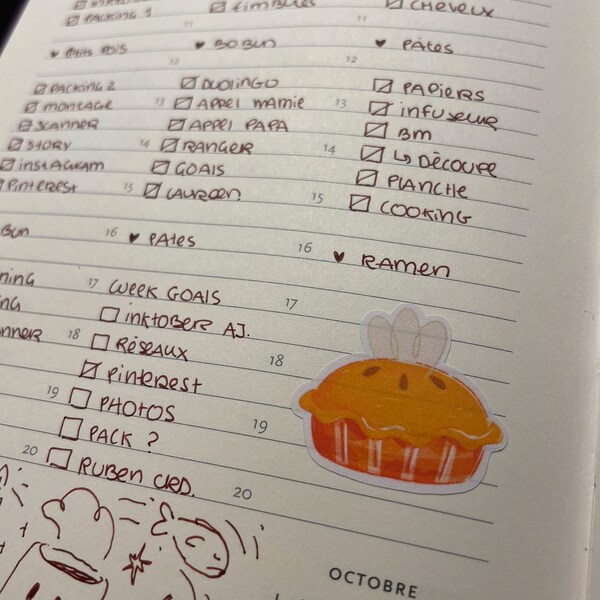 PACKING 1
timbres
CHEVEUX
11
11
♥ Petits pois
♥ BO BUN
♥ PÂTES
12
12
☑ PACKING 2
☑ DUOLINGO
☑ PAPIERS
☑ MONTAGE
13 ☑ APPEL MAMIE
13 ☑ INFUSEUR
☑ SCANNER
☑ APPEL PAPA
☑ BM
☑ STORY
14 ☑ RANGER
14 ☑ ↳ DÉCOUPE
☑ INSTAGRAM
☑ GOALS
☑ PLANCHE
PINTEREST
15 ☑ LAUREEN
15 ☑ COOKING
BUN
16 ♥ PATES
16 ♥ RAMEN
17 WEEK GOALS
17
☐ INKTOBER AJ.
18 ☐ RÉSEAUX
18
☑ PINTEREST
19 ☐ PHOTOS
19
☐ PACK ?
20 ☐ RUBEN CRD.
20
OCTOBRE